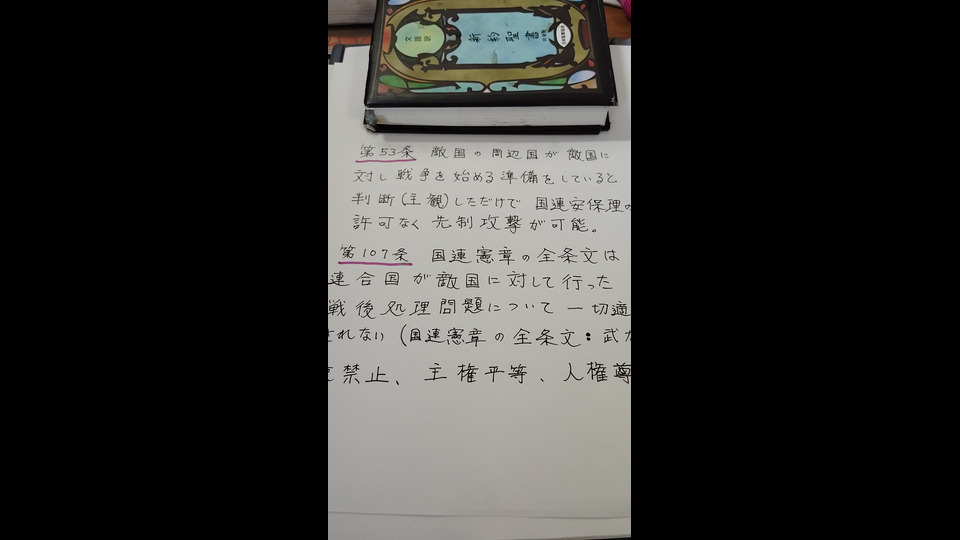 文語訳
新約聖書
第53条 敵国の周辺国が敵国に
対し戦争を始める準備をしていると
判断(主観)しただけで 国連安保理の
許可なく先制攻撃が可能。
第107条 国連憲章の全条文は
連合国が敵国に対して行った
戦後処理問題について一切適
されない(国連憲章の全条文:武力
禁止、主権平等、人権尊